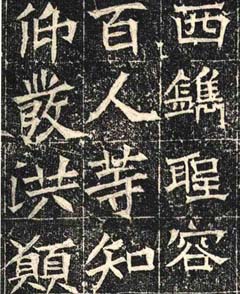 西鐫聖容
百人等知
仰發洪願